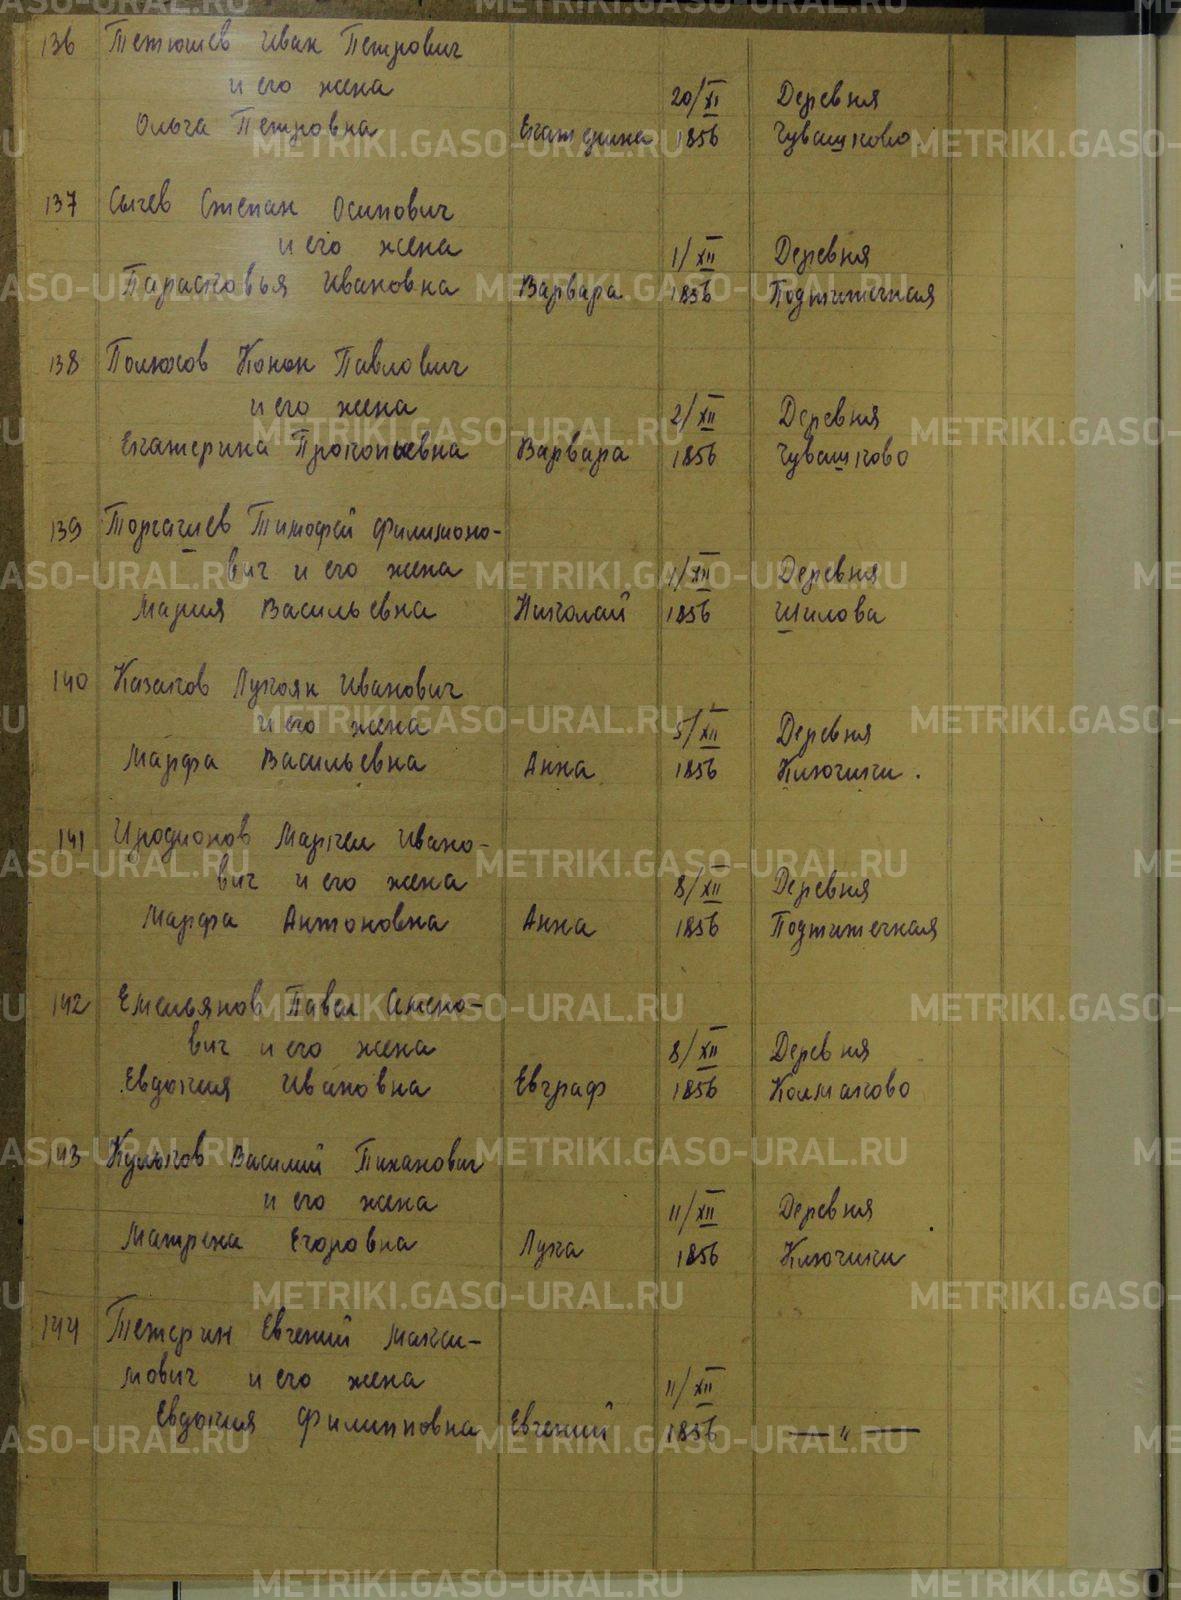 136 Тетюшев Иван Петрович
и его жена 20/XI Деревня
Ольга Петровна Екатерина 1856 Чувашково.
137 Сычев Степан Осипович
и его жена 1/XII Деревня
Парасковья Ивановна Варвара 1856 Подтитечная
138 Полюхов Конон Павлович
и его жена 2/XII Деревня
Екатерина Прокопьевна Варвара 1856 Чувашково
139 Торгашев Тимофей Филимоно-
вич и его жена 1/XII Деревня
Мария Васильевна Николай 1856 Шилова
140 Казаков Лукоян Иванович
и его жена 5/XII Деревня
Марфа Васильевна Анна 1856 Ключики.
141 Иродионов Маркел Ивано-
вич и его жена 8/XII Деревня
Марфа Антоновна Анна 1856 Подтитечная
142 Емельянов Павел Степо-
вич и его жена 8/XII Деревня
Евдокия Ивановна Евграф 1856 Колмаково
143 Василий
и его жена 11/XII Деревня
Матрена Егоровна Лука 1856 Ключики
144 Тетерин Евгений Макси-
мович и его жена 11/XII
Евдокия Филипповна Евгений 1856 — „ —
METRIKI.GASO-URAL.RU